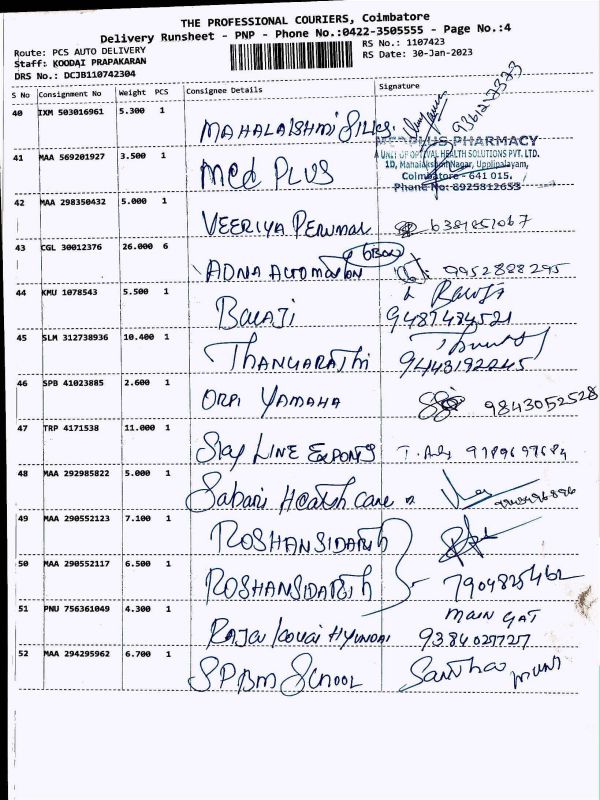 THE PROFESSIONAL COURIERS, Coimbatore
Delivery Runsheet - PNP - Phone No.:0422-3505555 - Page No.:4
Route: PCS AUTO DELIVERY RS No.: 1107423
Staff: KOODAI PRAPAKARAN RS Date: 30-Jan-2023
DRS No.: DCJB110742304
S No Consignment No Weight PCS Consignee Details Signature
40 IXM 503016961 5.300 1 MAHALAKSHMI SILKS.
MEDPLUS PHARMACY
A UNIT OF OPTIVAL HEALTH SOLUTIONS PVT. LTD.
1D, Mahalakshmi Nagar, Upplipalayam,
Coimbatore - 641 015.
Phone No: 8925812653
41 MAA 569201927 3.500 1 Med PLUS
42 MAA 298350432 5.000 1 VEERIYA PERUMAL 6381851067
43 CGL 30012376 26.000 6 ADNA AUTOMATION 6BOX 9952888295
44 KMU 1078543 5.500 1 BALAJI Balaji
9487484521
45 SLM 312738936 10.400 1 THANGARATHI
9443192245
46 SPB 41023885 2.600 1 ORPI YAMAHA 9843052528
47 TRP 4171538 11.000 1 Sky LINE EXPORTS 9789697684
48 MAA 292985822 5.000 1 Sabari Health care
49 MAA 290552123 7.100 1 ROSHANSIDARTH
50 MAA 290552117 6.500 1 ROSHANSIDARTH 7904825462
51 PNU 756361049 4.300 1 RAJA HYUNDAI main GAT
9384027727
52 MAA 294295962 6.700 1 SPBM SCHOOL